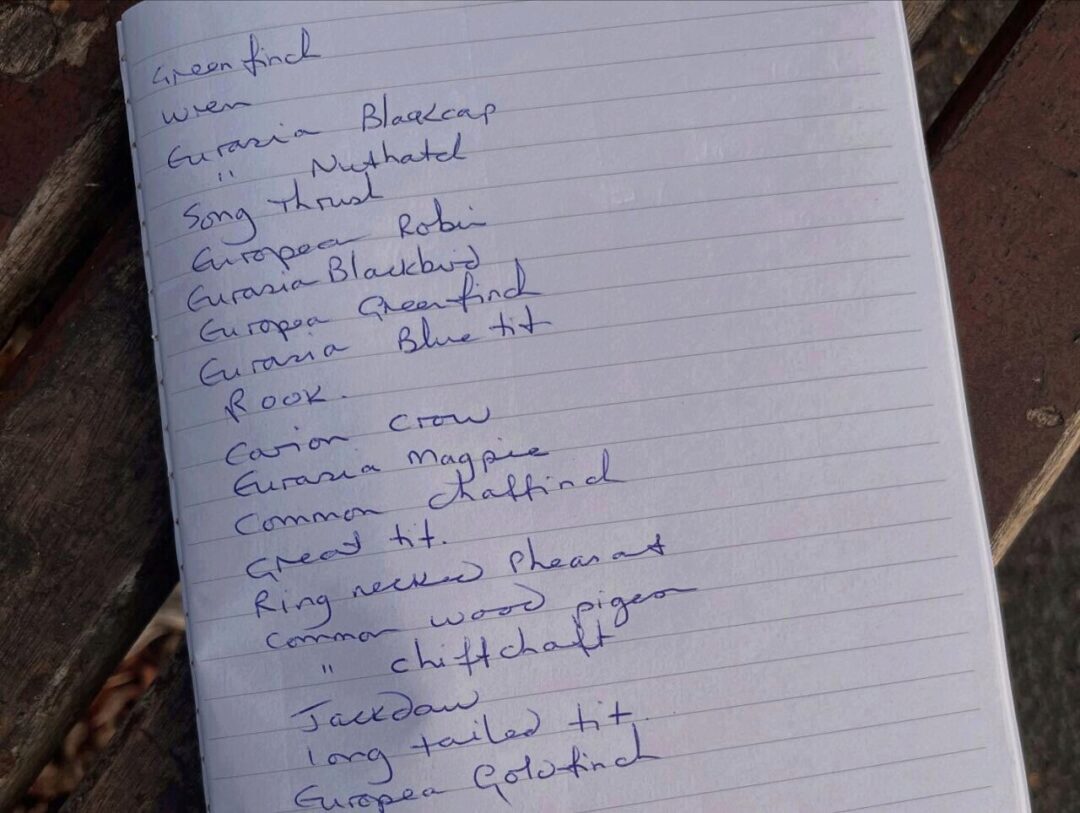 Greenfinch
Wren
Eurasia Blackcap
" Nuthatch
Song Thrush
European Robin
Eurasia Blackbird
Europea Greenfinch
Eurasia Blue tit
Rook.
Carion Crow
Eurasia Magpie
Common Chaffinch
Great tit.
Ring necked Pheasant
Common wood pigeon
" chiffchaff
Jackdaw
long tailed tit.
Europea Goldfinch